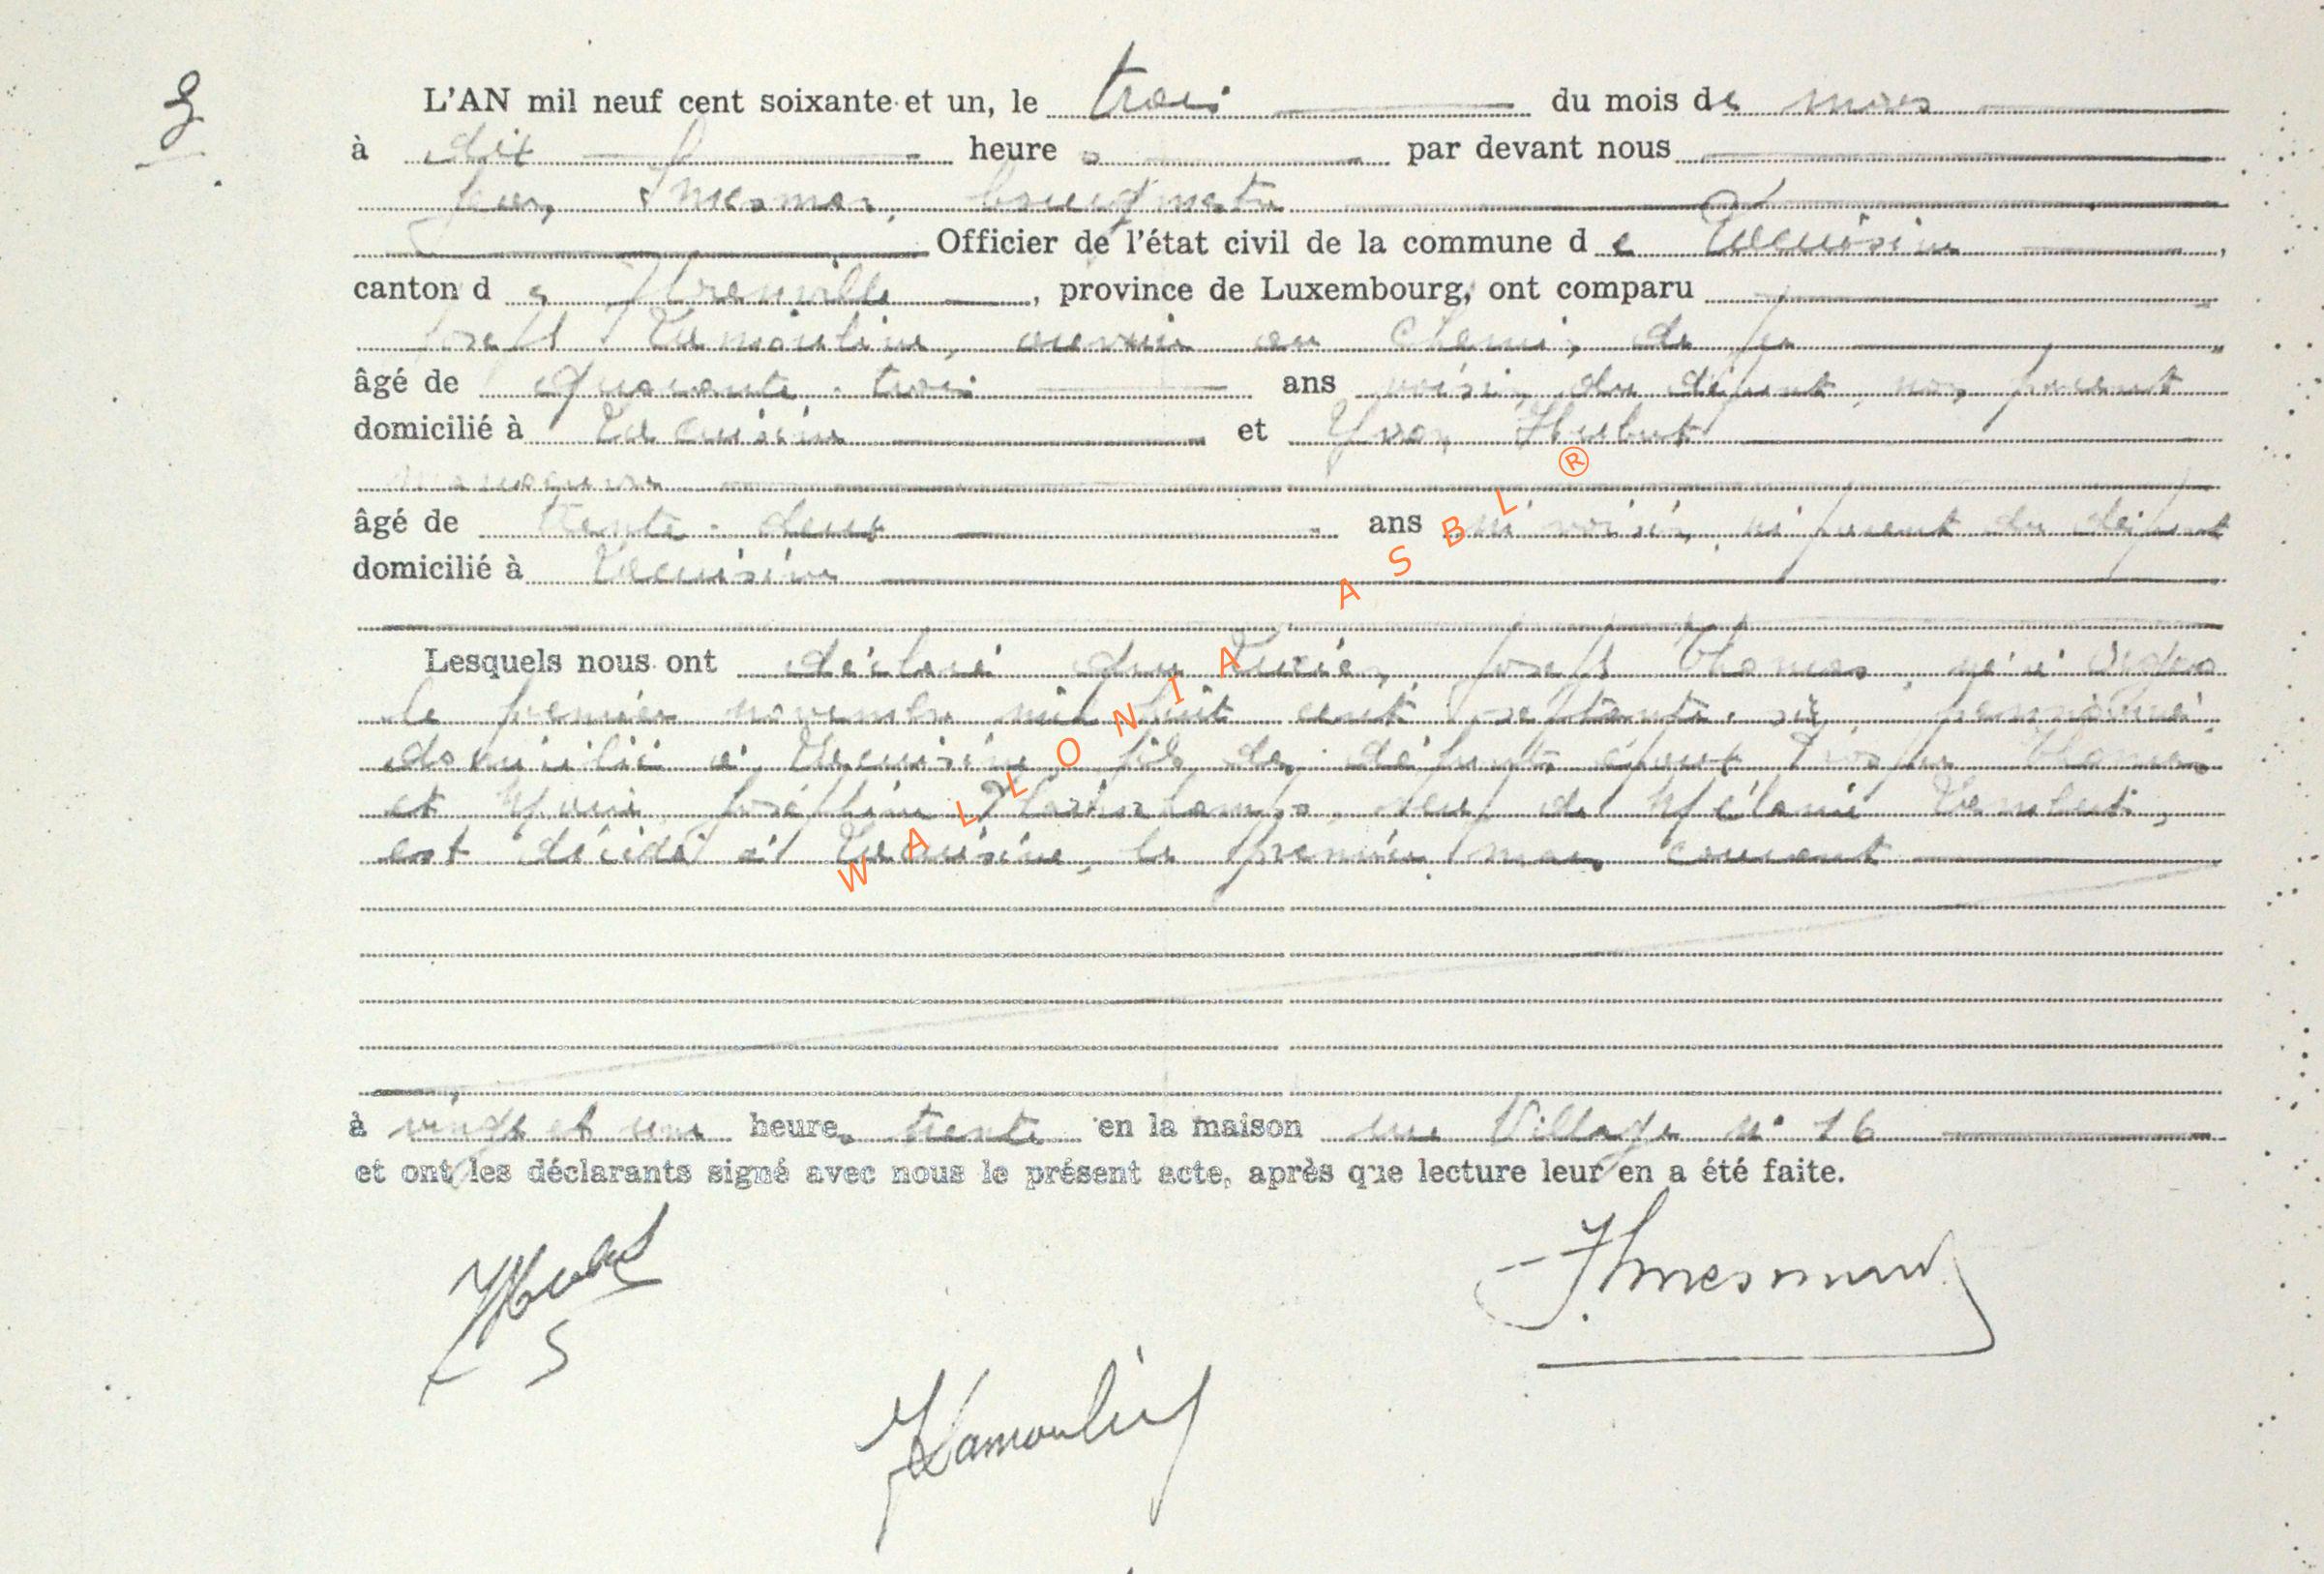 3
L'AN mil neuf cent soixante et un, le trois du mois de mars
à dix heures par devant nous
Jean Thiesman, bourgmestre
Officier de l'état civil de la commune de Lacuisine,
canton de Florenville, province de Luxembourg, ont comparu
Joseph Lamouline, ouvrier au chemin de fer
âgé de quarante-trois ans voisin du défunt, non parent
domicilié à Lacuisine et Yvon Hubert
manoeuvre
âgé de trente-deux ans ni voisin, ni parent du défunt
domicilié à Lacuisine
Lesquels nous ont déclaré que Lucien, Joseph Thomas, né à
le premier novembre mil huit cent septante-six, pensionné
domicilié à Lacuisine fils des défunts époux Thomas
et Marie Joséphine veuf de Mélanie Lambert,
est décédé à Lacuisine, le premier mars courant
à vingt et une heures trente en la maison rue Village n° 16
et ont les déclarants signé avec nous le présent acte, après que lecture leur en a été faite.
YHubert
JLamoulin
WALLONIA ASBL ®